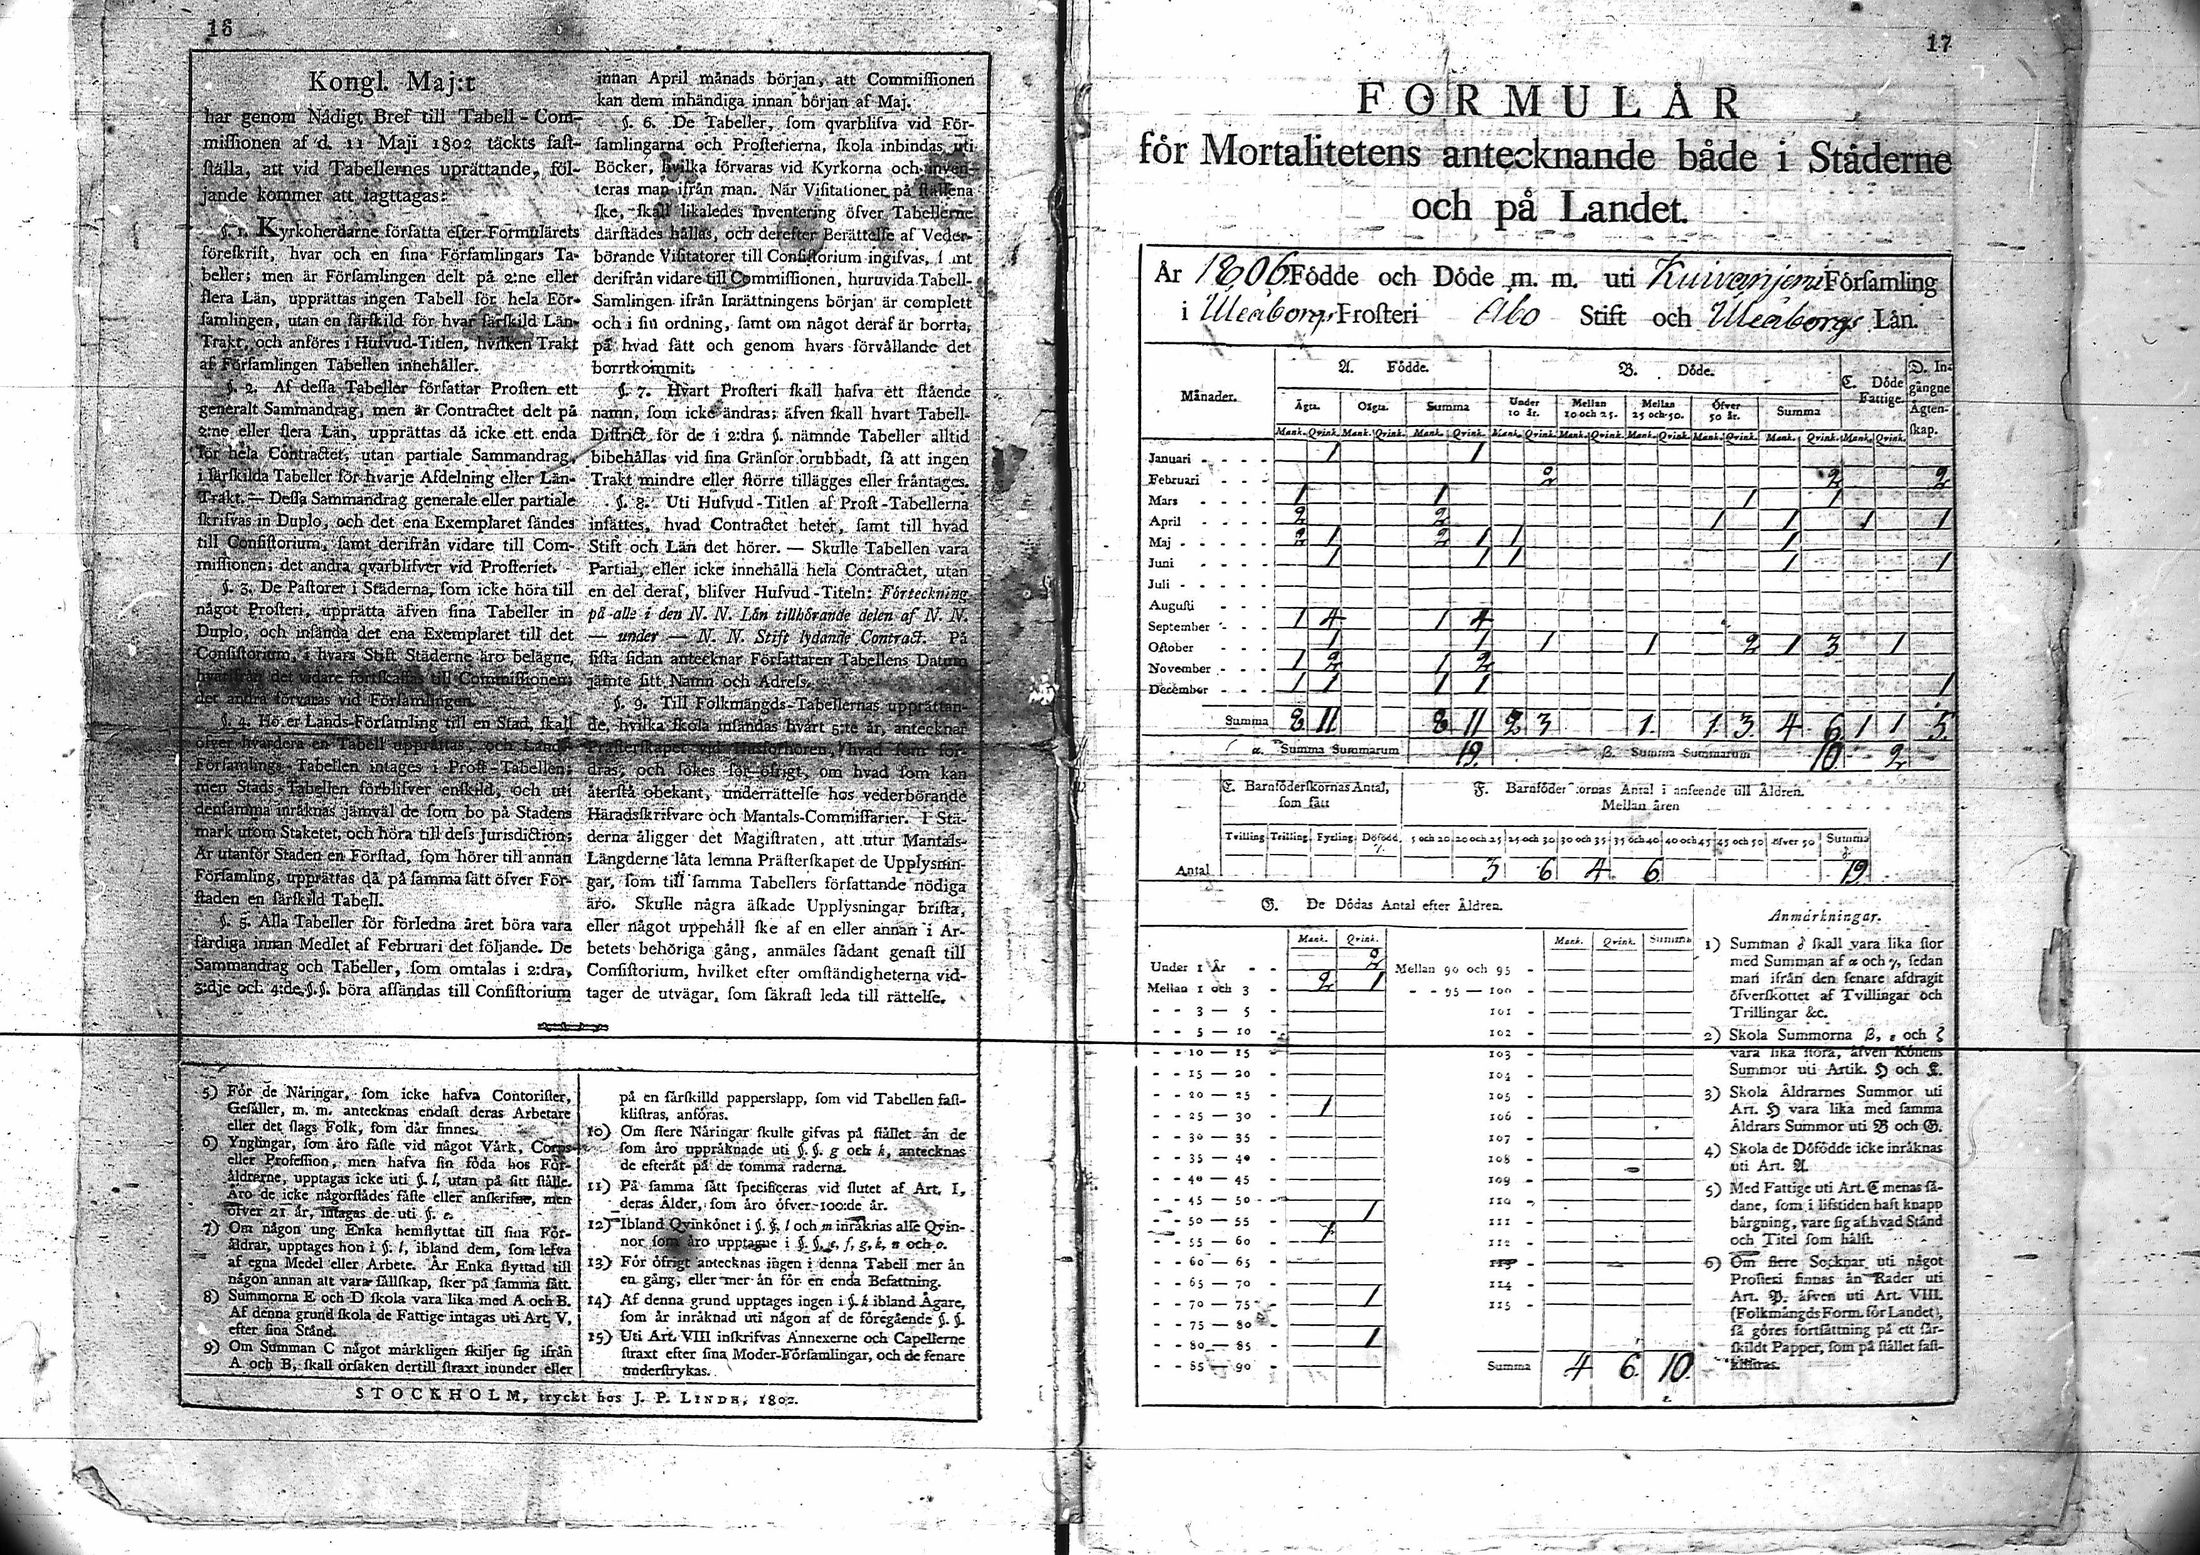 16
Kongl. Maj:t
har genom Nådigt Bref till Tabell-Com-
missionen af d. 11 Maji 1802 täckts fast-
ställa, att vid Tabellernes uprättande, föl-
jande kommer att iagttagas:
§. 1. Kyrkoherdarne författa efter Formulärets
föreskrift, hvar och en sina Församlingars Ta-
beller; men är Församlingen delt på 2:ne eller
flera Län, upprättas ingen Tabell för hela För-
samlingen, utan en särskild för hvar särskild Län-
Trakt, och anföres i Hufvud-Titlen, hvilken Trakt
af Församlingen Tabellen innehåller.
§. 2. Af dessa Tabeller författar Prosten ett
generalt Sammandrag, men är Contractet delt på
2:ne eller flera Län, upprättas då icke ett enda
för hela Contractet, utan partiale Sammandrag,
i särskilda Tabeller för hvarje Afdelning eller Län-
Trakt. — Dessa Sammandrag generale eller partiale
skrifvas in Duplo, och det ena Exemplaret sändes
till Consistorium, samt derifrån vidare till Com-
missionen; det andra qvarblifver vid Prosteriet.
§. 3. De Pastorer i Städerna, som icke höra till
något Prosteri, upprätta äfven sina Tabeller in
Duplo, och insända det ena Exemplaret till det
Consistorium, i hvars Stift Städerne äro belägne,
hvarifrån det vidare fortskaffas till Commissionen;
det andra förvaras vid Församlingen.
§. 4. Hörer Lands-Församling till en Stad, skall
öfver hvardera en Tabell upprättas, och Lands-
Församlings-Tabellen intages i Prost-Tabellen;
men Stads-Tabellen förblifver enskild, och uti
densamma inräknas jämväl de som bo på Stadens
mark utom Staketet, och höra till dess Jurisdiction;
Är utanför Staden en Förstad, som hörer till annan
Församling, upprättas då på samma sätt öfver För-
staden en särskild Tabell.
§. 5. Alla Tabeller för förledna året böra vara
färdiga innan Medlet af Februari det följande. De
Sammandrag och Tabeller, som omtalas i 2:dra,
3:dje och 4:de §.§. böra afsändas till Consistorium
innan April månads början, att Commissionen
kan dem inhändiga innan början af Maj.
§. 6. De Tabeller, som qvarblifva vid För-
samlingarna och Prosterierna, skola inbindas uti
Böcker, hvilka förvaras vid Kyrkorna och inven-
teras man ifrån man. När Visitationer på ställena
ske, skall likaledes inventering öfver Tabellerne
därstädes hållas, och derefter Berättelse af Veder-
börande Visitatorer till Consistorium ingifvas, samt
derifrån vidare till Commissionen, huruvida Tabell-
Samlingen ifrån Inrättningens början är complett
och i sin ordning, samt om något deraf är borrta,
på hvad sätt och genom hvars förvållande det
borrtkommit.
§. 7. Hvart Prosteri skall hafva ett stående
namn, som icke ändras; äfven skall hvart Tabell-
District för de i 2:dra §. nämnde Tabeller alltid
bibehållas vid sina Gränsor orubbadt, så att ingen
Trakt mindre eller större tillägges eller fråntages.
§. 8. Uti Hufvud-Titlen af Prost-Tabellerna
insättes, hvad Contractet heter, samt till hvad
Stift och Län det hörer. — Skulle Tabellen vara
Partial, eller icke innehålla hela Contractet, utan
en del deraf, blifver Hufvud-Titeln: Förteckning
på alle i den N. N. Län tillhörande delen af N. N.
— under — N. N. Stift lydande Contract. På
sista sidan antecknar Författaren Tabellens Datum
jämte sitt Namn och Adress.
§. 9. Till Folkmängds-Tabellernas upprättan-
de, hvilka skola insändas hvart 5:te år, antecknar
Prästerskapet vid Husförhören, hvad som for-
dras; och sökes för öfrigt, om hvad som kan
återstå obekant, underrättelse hos vederbörande
Häradsskrifvare och Mantals-Commissarier. I Stä-
derna åligger det Magistraten, att utur Mantals-
Längderne låta lemna Prästerskapet de Upplysnin-
gar, som till samma Tabellers författande nödiga
äro. Skulle några äskade Upplysningar brista,
eller något uppehåll ske af en eller annan i Ar-
betets behöriga gång, anmäles sådant genast till
Consistorium, hvilket efter omständigheterna vid-
tager de utvägar, som säkrast leda till rättelse.
5) För de Näringar, som icke hafva Contorister,
Gesäller, m. m. antecknas endast deras Arbetare
eller det slags Folk, som där finnes.
6) Ynglingar, som äro fäste vid något Värk, Corps
eller Profession, men hafva sin föda hos För-
äldrarne, upptagas icke uti §. l, utan på sitt ställe.
Äro de icke någorstädes fäste eller anskrifne, men
öfver 21 år, intagas de uti §. e.
7) Om någon ung Enka hemflyttat till sina För-
äldrar, upptages hon i §. l, ibland dem, som lefva
af egna Medel eller Arbete. Är Enka flyttad till
någon annan att vara sällskap, sker på samma sätt.
8) Summorna E och D skola vara lika med A och B.
Af denna grund skola de Fattige intagas uti Art. V,
efter sina Stånd.
9) Om Summan C något märkligen skiljer sig ifrån
A och B, skall orsaken dertill straxt inunder eller
på en särskilld papperslapp, som vid Tabellen fast-
klistras, anföras.
10) Om flere Näringar skulle gifvas på stället än de
som äro uppräknade uti §. §. g och k, antecknas
de efteråt på de tomma raderna.
11) På samma sätt specificeras vid slutet af Art. I,
deras Ålder, som äro öfver 100:de år.
12) Ibland Qvinkönet i §. §. l och m inräknas alle Qvin-
nor som äro upptagne i §. §. e, f, g, k, n och o.
13) För öfrigt antecknas ingen i denna Tabell mer än
en gång, eller mer än för en enda Befattning.
14) Af denna grund upptages ingen i §. k ibland Ägare,
som är inräknad uti någon af de föregående §. §.
15) Uti Art. VIII inskrifvas Annexerne och Capellerne
straxt efter sina Moder-Församlingar, och de senare
understrykas.
STOCKHOLM, tryckt hos J. P. LINDH, 1802.
17
FORMULÄR
för Mortalitetens antecknande både i Städerne
och på Landet.
År 1806 Födde och Döde m. m. uti Kuivaniemi Församling
i Uleåborgs Prosteri Åbo Stift och Uleåborgs Län.
Månader. A. Födde. B. Döde. C. Döde Fattige. D. In-
gångne Ägten-
skap.
Ägta. Oägta. Summa Under 10 år. Mellan 10 och 25. Mellan 25 och 50. Öfver 50 år. Summa
Mank. Qvink. Mank. Qvink. Mank. Qvink. Mank. Qvink. Mank. Qvink. Mank. Qvink. Mank. Qvink. Mank. Qvink. Mank. Qvink.
Januari - - - - 1 1
Februari - - - - 2 2 2
Mars - - - - 1 1 1 1
April - - - - 2 2 1 1 1 1
Maj - - - - 2 1 2 1 1 1
Juni - - - - 1 1 1 1 1
Juli - - - -
Augusti - - - -
September - - - 1 4 1 4
October - - - 1 1 1 1 2 1 3 1
November - - - 1 2 1 2
December - - - 1 1 1 1 1
Summa 8 11 8 11 2 3 1. 1. 3. 4 6 1 1 5.
α. Summa Summarum 19. β. Summa Summarum 10 2
E. Barnföderskornas Antal,
som fått
F. Barnföderskornas Antal i anseende till Åldren.
Mellan åren
Tvilling Trilling Fyrling Dödfödd 5 och 20 20 och 25 25 och 30 30 och 35 35 och 40 40 och 45 45 och 50 öfver 50 Summa
Antal 3 6 4 6 19
G. De Dödas Antal efter Åldren.
Mank. Qvink. Mank. Qvink. Summa
Under 1 År - - 2 Mellan 90 och 95 -
Mellan 1 och 3 - 2 1 - - 95 — 100 -
- - 3 — 5 - 101 -
- - 5 — 10 - 102 -
- - 10 — 15 - 103 -
- - 15 — 20 - 104 -
- - 20 — 25 - 105 -
- - 25 — 30 - 1 106 -
- - 30 — 35 - 107 -
- - 35 — 40 - 108 -
- - 40 — 45 - 109 -
- - 45 — 50 - 110 -
- - 50 — 55 - 1 111 -
- - 55 — 60 - 1 112 -
- - 60 — 65 - 113 -
- - 65 — 70 - 114 -
- - 70 — 75 - 1 115 -
- - 75 — 80 -
- - 80 — 85 - 1
- - 85 — 90 - Summa 4 6 10
Anmärkningar.
1) Summan δ skall vara lika stor
med Summan af α och γ, sedan
man ifrån den senare afdragit
öfverskottet af Tvillingar och
Trillingar &c.
2) Skola Summorna β, ε och ζ
vara lika stora, äfven Könens
Summor uti Artik. H och L.
3) Skola Åldrarnes Summor uti
Art. H vara lika med samma
Åldrars Summor uti B och G.
4) Skola de Dödfödde icke inräknas
uti Art. A.
5) Med Fattige uti Art. C menas så-
dane, som i lifstiden haft knapp
bärgning, vare sig af hvad Stånd
och Titel som hälst.
6) Om flere Socknar uti något
Prosteri finnas än Rader uti
Art. P. äfven uti Art. VIII.
(Folkmängds Form. för Landet),
så göres fortsättning på ett sär-
skildt Papper, som på stället fast-
klistras.